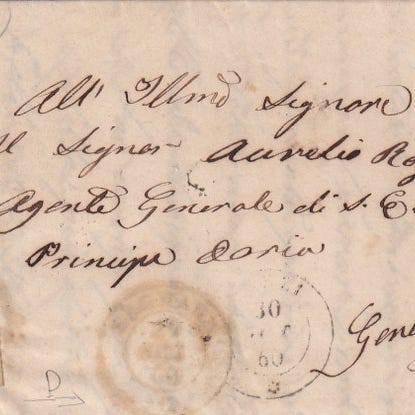 All' Illmo Signore
Il Signor Aurelio
Agente Generale di S. E.
Principe Doria
30
60